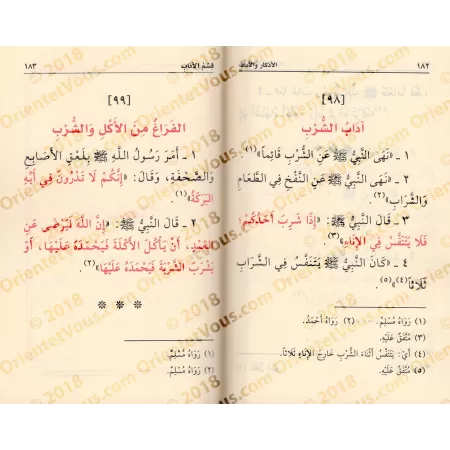 ١٨٢ الأذكار والآداب
[٩٨]
آدَابُ الشُّرْبِ
١ ـ «نَهَى النَّبِيُّ ﷺ عَنِ الشُّرْبِ قَائِماً»(١).
٢ ـ نَهَى النَّبِيُّ ﷺ عَنِ النَّفْخِ فِي الطَّعَامِ
وَالشَّرَابِ(٢).
٣ ـ قَالَ النَّبِيُّ ﷺ: «إِذَا شَرِبَ أَحَدُكُمْ؛
فَلَا يَتَنَفَّسْ فِي الإِنَاءِ»(٣).
٤ ـ «كَانَ النَّبِيُّ ﷺ يَتَنَفَّسُ فِي الشَّرَابِ
ثَلَاثاً»(٤)(٥).
(١) رَوَاهُ مُسْلِمٌ. (٢) رَوَاهُ أَحْمَدُ.
(٣) مُتَّفَقٌ عَلَيْهِ.
(٤) أَيْ: يَتَنَفَّسُ أَثْنَاءَ الشُّرْبِ خَارِجَ الإِنَاءِ ثَلَاثاً.
(٥) مُتَّفَقٌ عَلَيْهِ.
قِسْمُ الآدَابِ ١٨٣
[٩٩]
الفَرَاغُ مِنَ الأَكْلِ وَالشُّرْبِ
١ ـ أَمَرَ رَسُولُ اللَّهِ ﷺ بِلَعْقِ الأَصَابِعِ
وَالصَّحْفَةِ، وَقَالَ: «إِنَّكُمْ لَا تَدْرُونَ فِي أَيِّهِ
البَرَكَةُ»(١).
٢ ـ قَالَ النَّبِيُّ ﷺ: «إِنَّ اللَّهَ لَيَرْضَى عَنِ
العَبْدِ، أَنْ يَأْكُلَ الأَكْلَةَ فَيَحْمَدَهُ عَلَيْهَا، أَوْ
يَشْرَبَ الشَّرْبَةَ فَيَحْمَدَهُ عَلَيْهَا»(٢).
* * *
(١) رَوَاهُ مُسْلِمٌ.
(٢) رَوَاهُ مُسْلِمٌ.
© 2018 OrientetVous.com